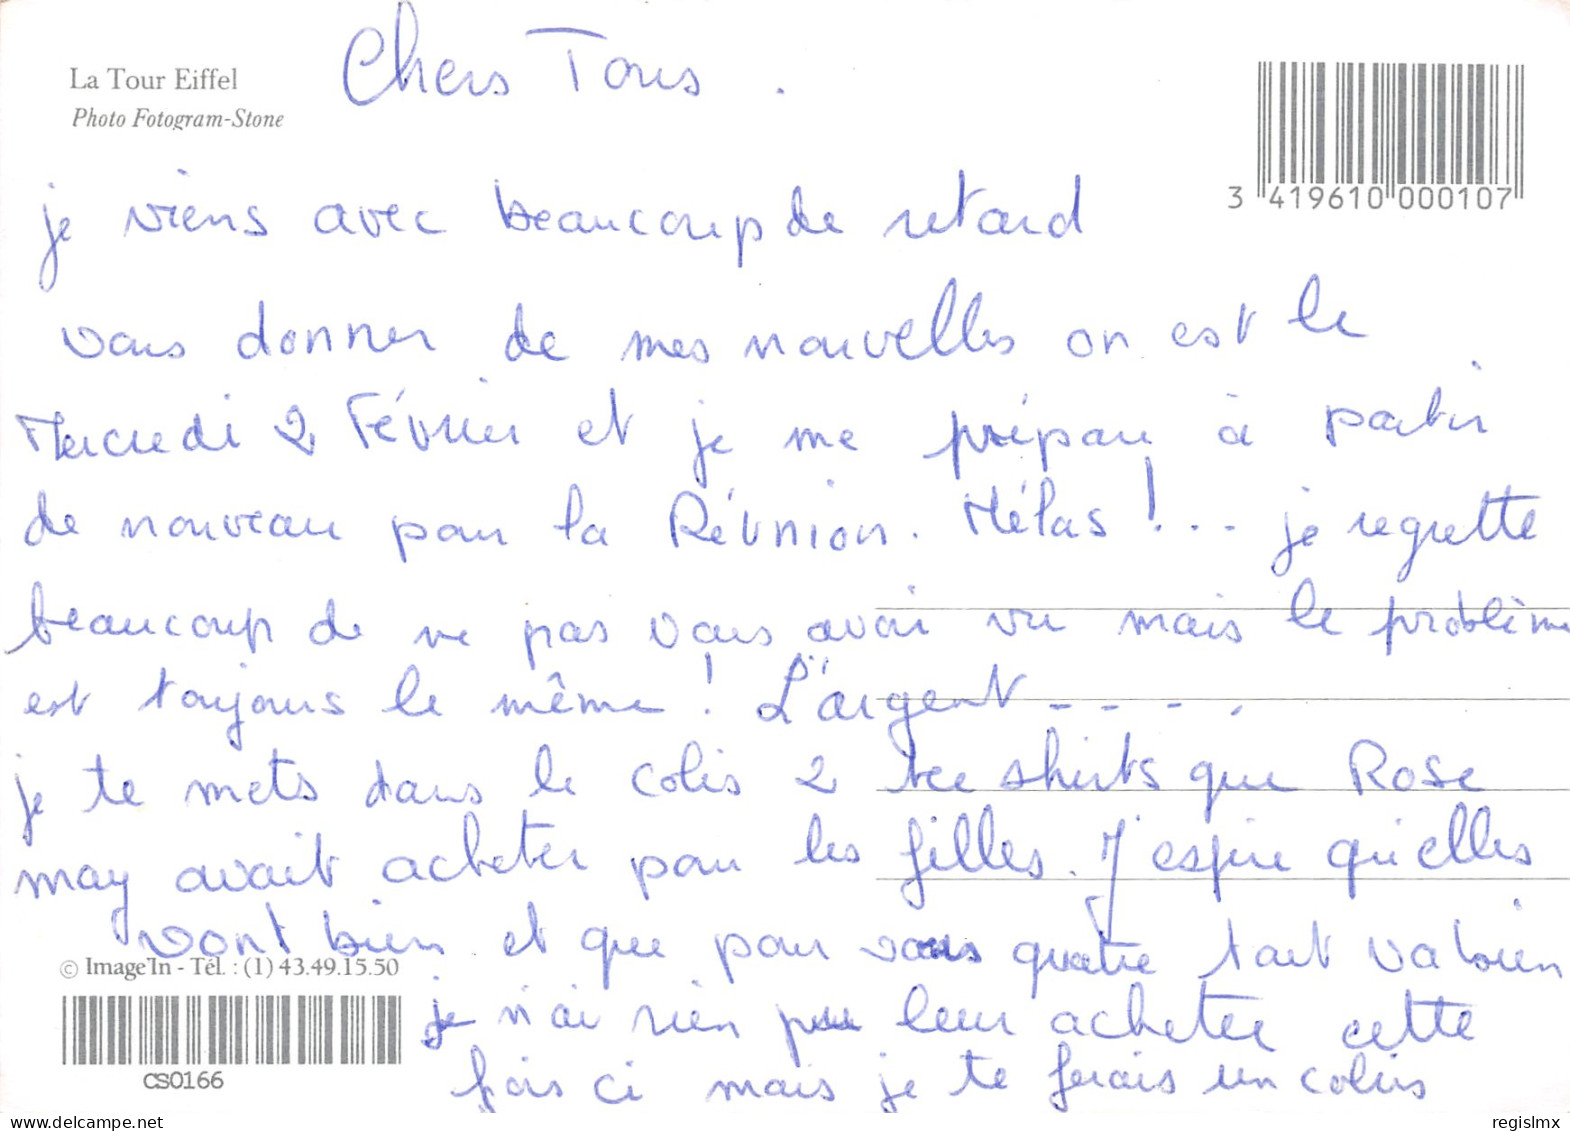 La Tour Eiffel
Photo Fotogram-Stone
Chers Tous.
3 419610 000107
je viens avec beaucoup de retard
vous donner de mes nouvelles on est le
Mercredi 2 Février et je me prépare à partir
de nouveau pour la Réunion. Hélas !... je regrette
beaucoup de ne pas vous avoir vu mais le problème
est toujours le même ! L'argent ----.
je te mets dans le colis 2 tee shirts que Rose
may avait acheter pour les filles. J'espère qu'elles
vont bien et que pour vous quatre tout va bien
© Image'In - Tél. : (1) 43.49.15.50
je n'ai rien pu leur acheter cette
CS0166
fois ci mais je te ferais un colis
delcampe.net
regislmx